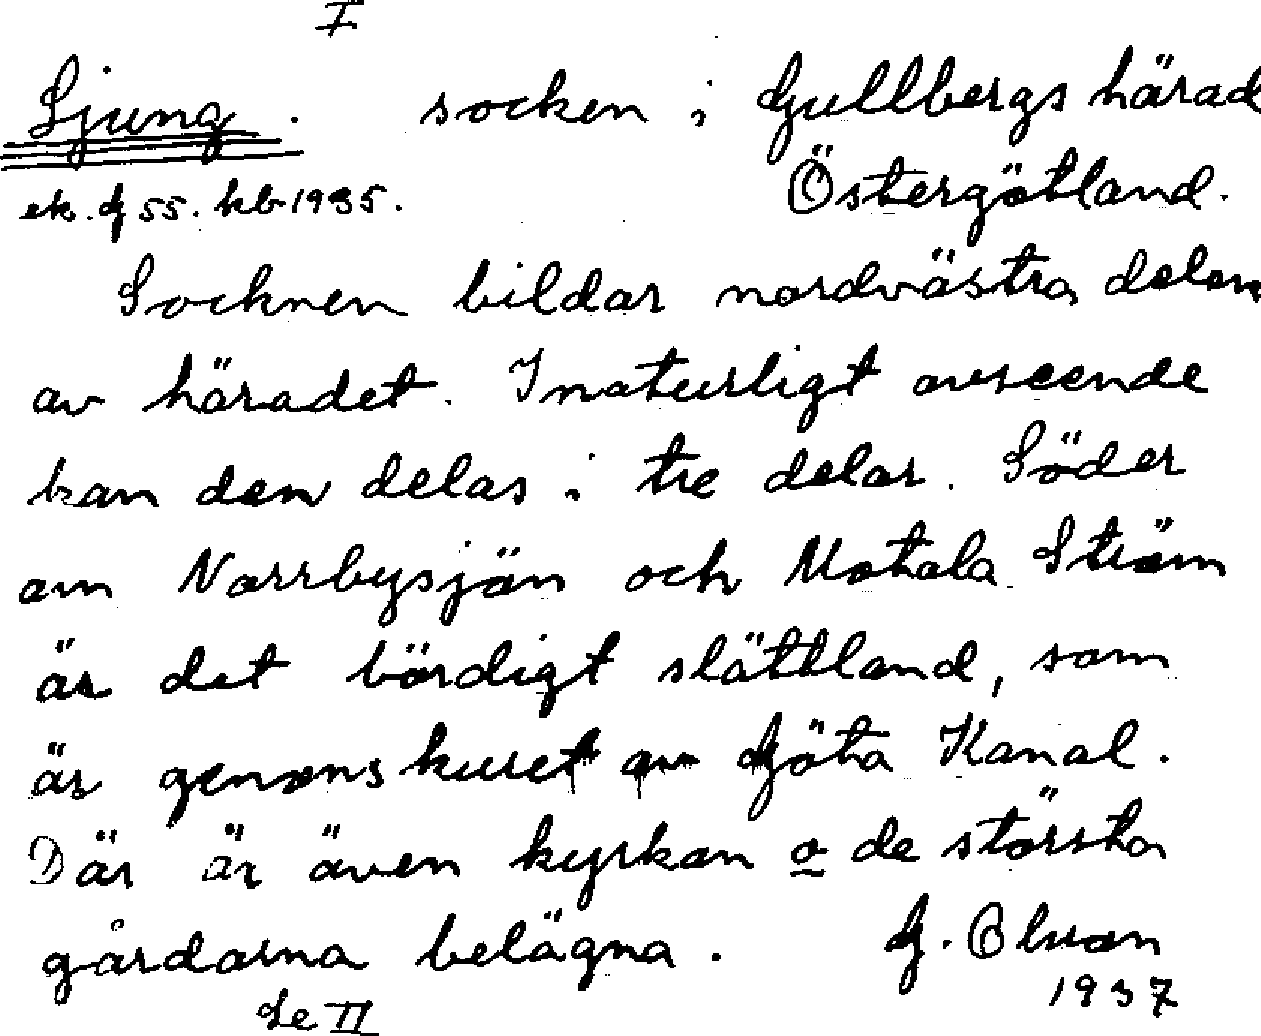 I
Ljung. socken i Gullbergs härad
Östergötland.
ek. G 55. kb 1935.
Socknen bildar nordvästra delen
av häradet. I naturligt avseende
kan den delas i tre delar. Söder
om Norrbysjön och Motala Ström
är det bördigt slättland, som
är genomskuret av Göta Kanal.
Där är även kyrkan o de största
gårdarna belägna. G. Olsson
1937
Se II